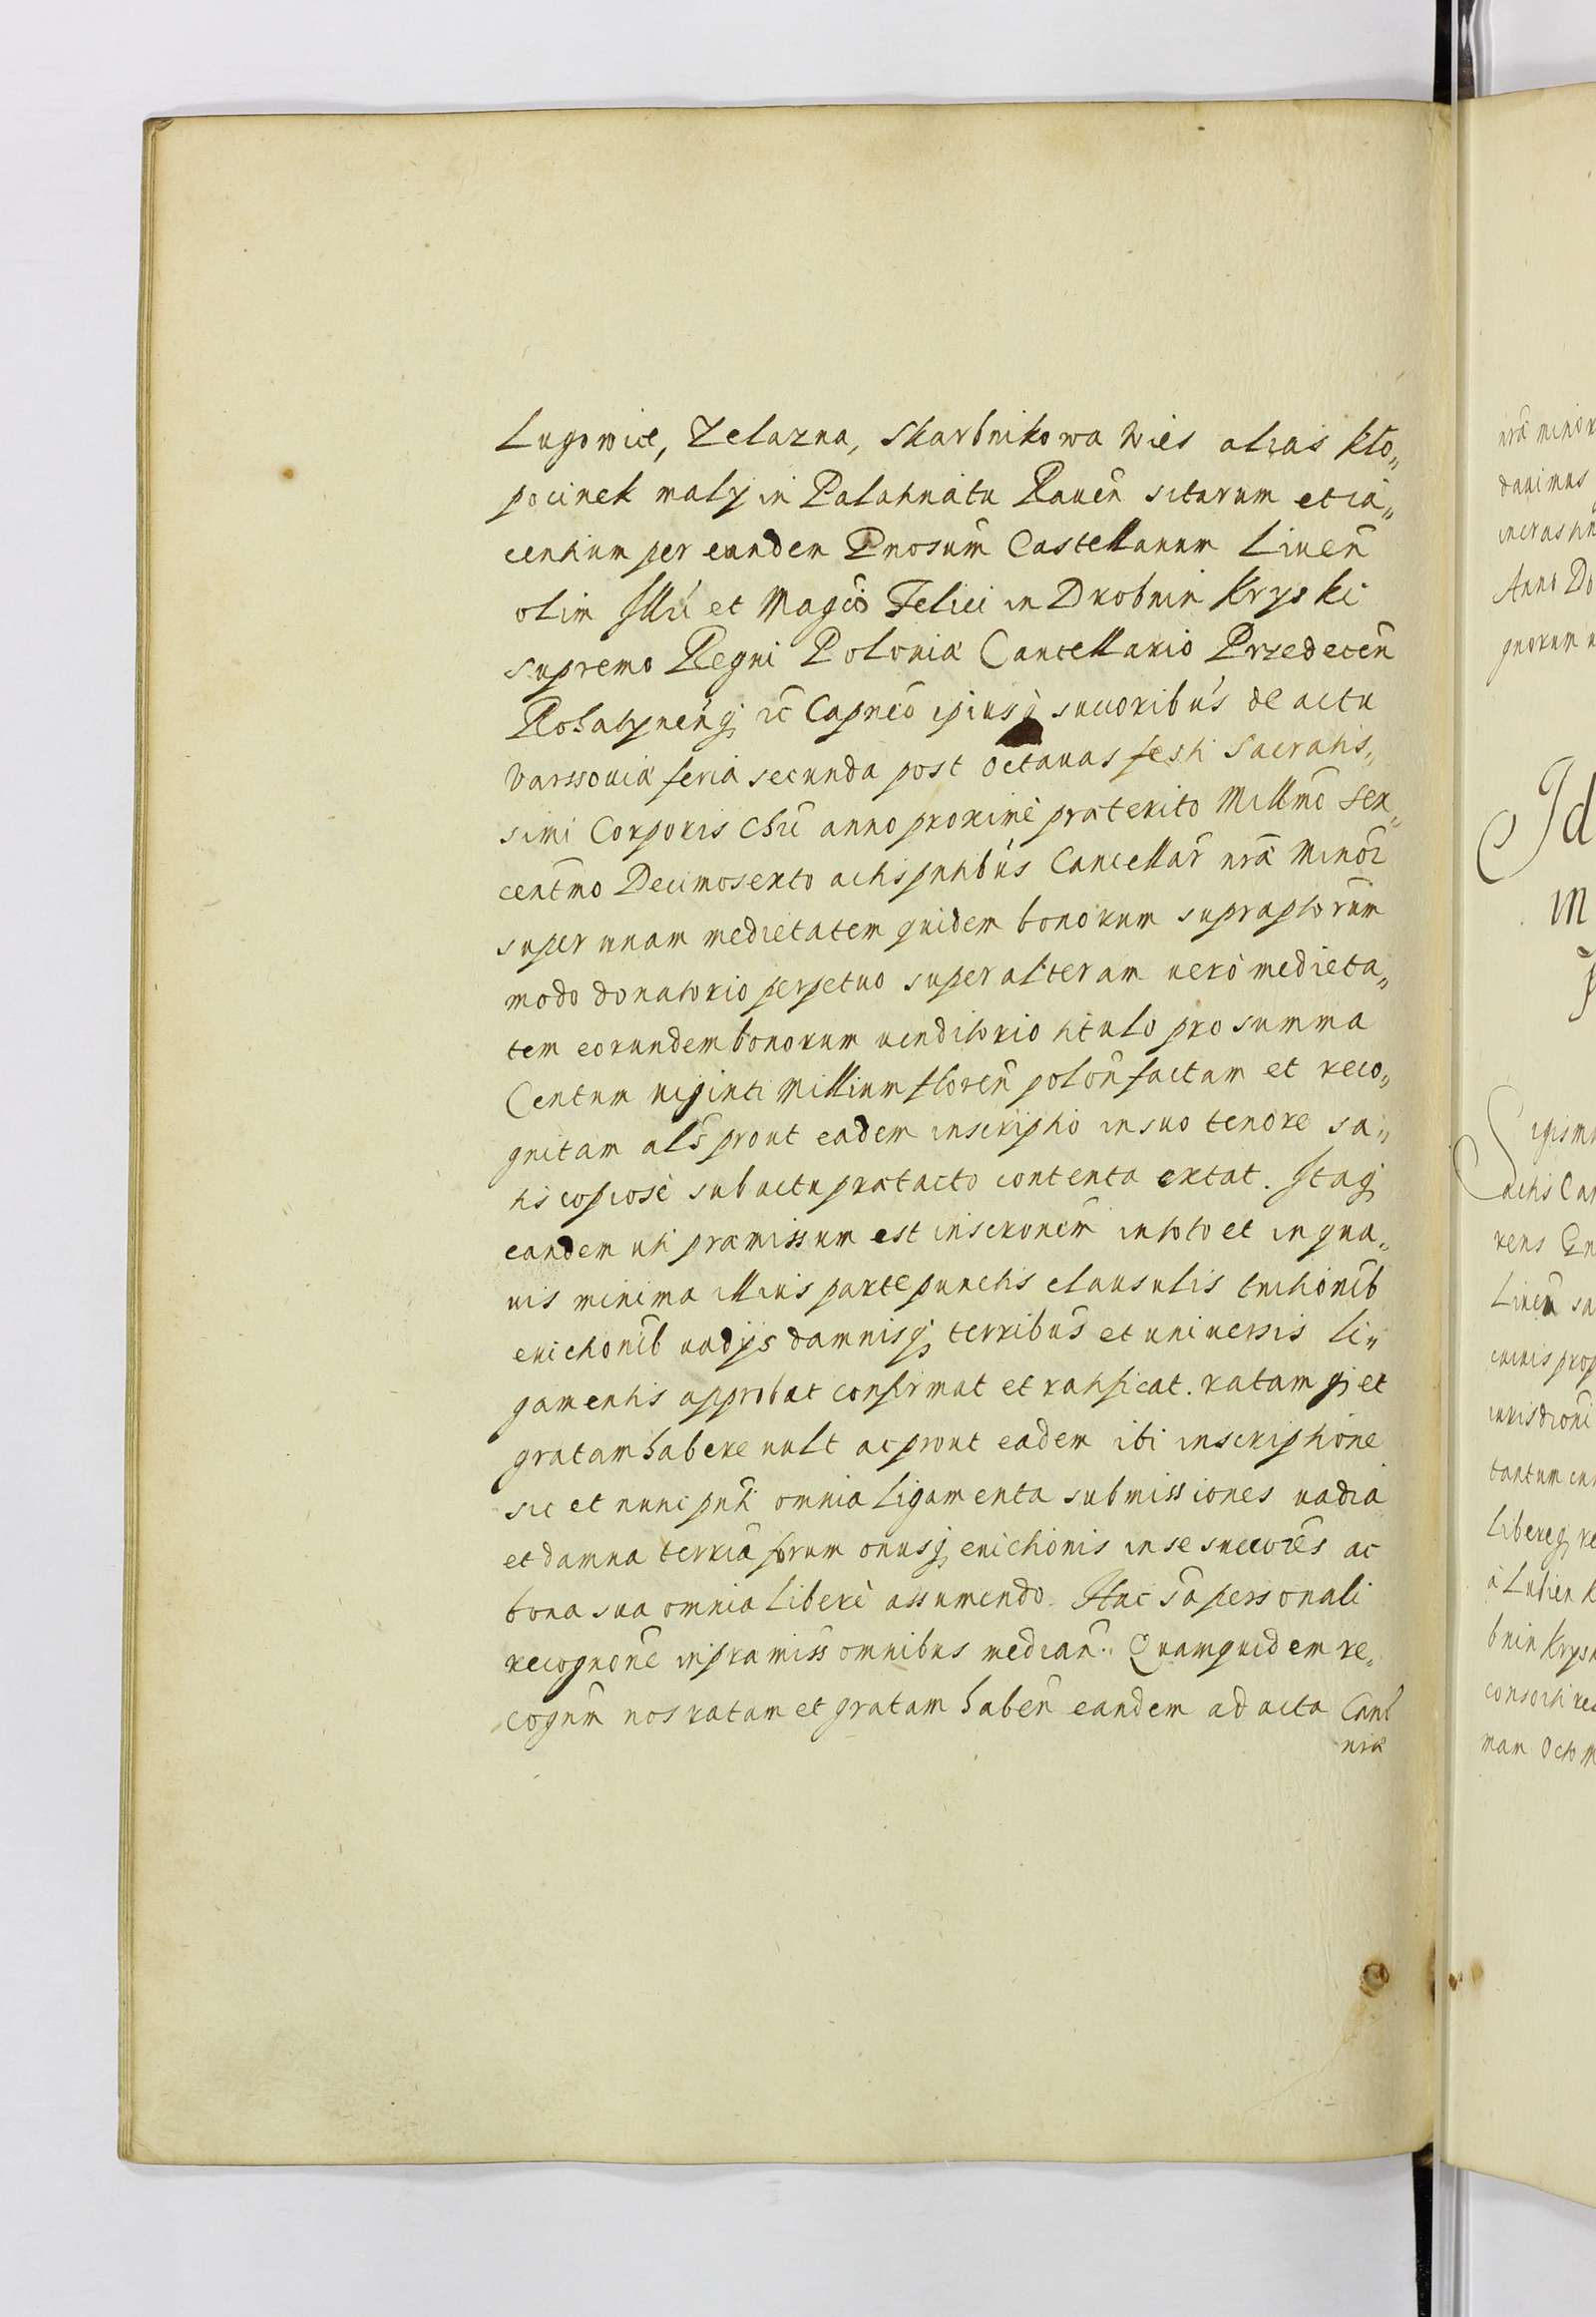 Lugowice, Zelazna, Skarbnikowa Wies alias kło„
pocinek maly in Palatinatu Raueñ sitarum et ia„
centium per eundem Gnosum̃ Castellanum Liueñ
olim Illri et Magco Felici in Drobnin Kryski
supremo Regni Poloniæ Cancellario Przedeceñ
Rohatyneñq; ac Capneo ipiusq; succoribus de actu
Varssouiæ feria secunda post octauas festi Sacratis„
simi Corporis Chri anno proxime præterito Millmo sex„
centmo Decimosexto actis pntibus Cancellar nræ Minor
super unam medietatem quidem bonorum supraptorum
modo donatorio perpetuo super alteram uerò medieta„
tem eorundem bonorum uenditorio titulo pro summa
Centum uiginti Millium floreñ poloñ factam et reco„
gnitam als prout eadem inscriptio in suo tenore sa„
tis copiosè sub actu prætacto contenta extat. Itaq;
eandem uti præmissum est inscronem in toto et in qua„
uis minima illius parte punctis clausulis cautionib
euictionib uadijs damnisq; terribus et uniuersis li„
gamentis approbat confirmat et ratificat. ratamq; et
gratam habere uult ac prout eadem ibi inscriptione
sic et nunc pnti omnia ligamenta submissiones uadia
et damna terria forum onusq; euictionis in se succores ac
bona sua omnia liberè assumendo. Hac sa personali
recognone in præmiss omnibus median. Quamquidem re„
cognm nos ratam et gratam habeñ eandem ad acta Canc
niæ
nrã minor
dauimus
Anno Do
quorum
Id
in
actis Can
rens
Liueñ sa
cuiuis prop
iurisdioni
tantum
Libereq; re
à Lubien
bnin Krys
consorti re
mam Octo m